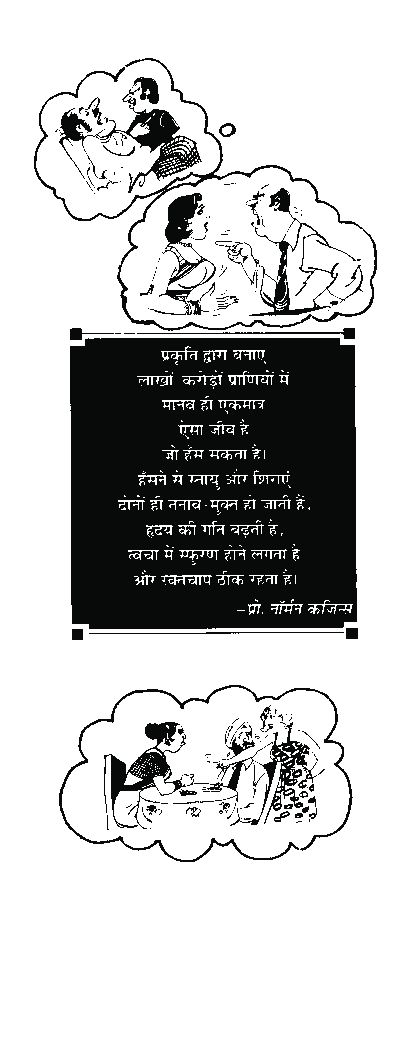 प्रकृति द्वारा बनाए
लाखों करोड़ों प्राणियों में
मानव ही एकमात्र
ऐसा जीव है
जो हँस सकता है।
हँसने से स्नायु और शिराएं
दोनों ही तनाव-मुक्त हो जाती हैं,
हृदय की गति बढ़ती है,
त्वचा में स्फुरण होने लगता है
और रक्तचाप ठीक रहता है।
–प्रो. नॉर्मन कजिन्स